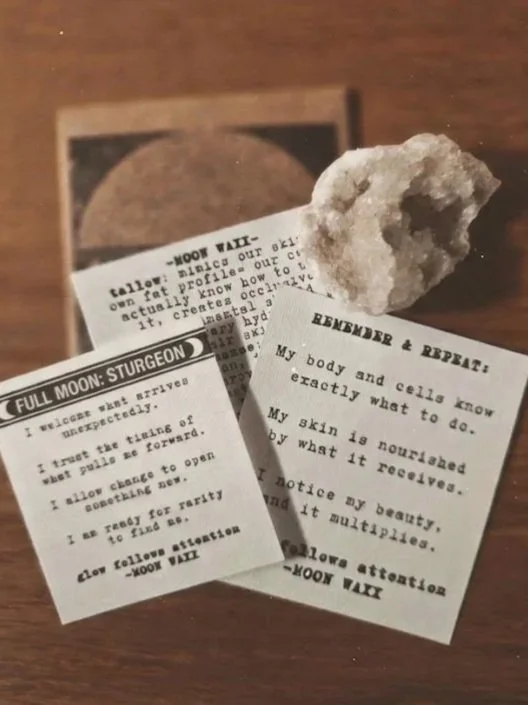 -MOON WAXX-
tallow: mimics our skin
own fat profile= our c
actually know how to
it, creates occlusive
FULL MOON: STURGEON
I welcome what arrives
unexpectedly.
I trust the timing of
what pulls me forward.
I allow change to open
something new.
I am ready for rarity
to find me.
glow follows attention
-MOON WAXX
REMEMBER & REPEAT:
My body and cells know
exactly what to do.
My skin is nourished
by what it receives.
I notice my beauty,
and it multiplies.
follows attention
-MOON WAXX